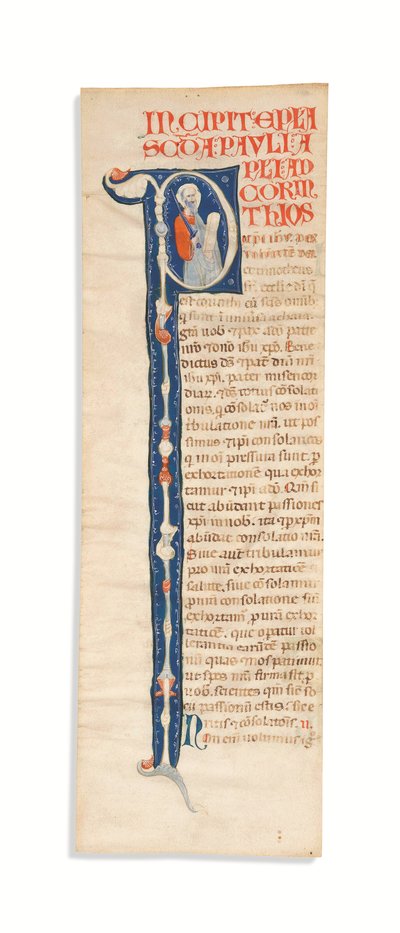 INCIPIT EPLA
SCDA PAVLI A
PLI AD
CORIN
THIOS
timotheus
fr. eccłie dī q̄
est corinthi cū scīs omib
q̄ sunt ī unīuersa achaia. gra
gr̄a uob̄ ⁊ pax a dō patre
nr̄o ⁊ dn̄o ihu xp̄o. Bene
dictus dꝰ ⁊ pat̄ dn̄i nr̄i
ihu xp̄i. pater misericor
diaꝝ. ⁊ dꝰ totius cōsolati
onis. q̄ cōsolat̄ nos in oī
tribulatione nr̄a. ut pos
simus ⁊ ip̄i consolari eos
q̄ in oī pressura sunt. p̄
exhortationē qua exhor
tamur ⁊ ip̄i a dō. Qm̄ si
cut abūdant passiones
xp̄i in nob̄. ita ⁊ p xp̄m
abūdat consolatio nr̄a.
Siue aut̄ tribulamur
pro ur̄a exhortatiōe ⁊
salute. siue cōsolamur
p ur̄a consolatione siue
exhortamur p ur̄a exhor
tatiōe. que opatur tol
lerantia earūdē passio
nū quas ⁊ nos patimur
ut spes nr̄a firma sit p
uob̄. scientes qm̄ sic̄ so
cii passionū estis. sic e
ritis ⁊ cōsolatōis.
Non enī uolumus ig